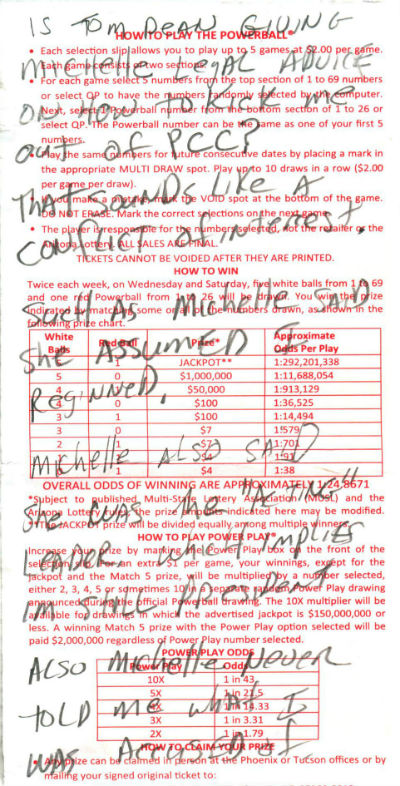 IS TOM DEAN GIVING
HOW TO PLAY THE POWERBALL®
• Each selection slip allows you to play up to 5 games at $2.00 per game.
Each game consists of two sections.
MICHELLE LEGAL ADVICE
• For each game select 5 numbers from the top section of 1 to 69 numbers
or select QP to have the numbers randomly selected by the computer.
ON HOW FORCE ME
Next, select 1 Powerball number from the bottom section of 1 to 26 or
select QP. The Powerball number can be the same as one of your first 5
numbers.
OUT OF PCCP
• Play the same numbers for future consecutive dates by placing a mark in
the appropriate MULTI DRAW spot. Play up to 10 draws in a row ($2.00
per game per draw).
THAT SOUNDS LIKE A
• If you make a mistake, mark the VOID spot at the bottom of the game.
DO NOT ERASE. Mark the correct selections on the next game.
• The player is responsible for the numbers selected, not the retailer or the
Arizona Lottery. ALL SALES ARE FINAL.
CONFLICT OF INTEREST
TICKETS CANNOT BE VOIDED AFTER THEY ARE PRINTED.
HOW TO WIN
Twice each week, on Wednesday and Saturday, five white balls from 1 to 69
and one red Powerball from 1 to 26 will be drawn. You win the prize
SUCH AS MICHELLE SAID
indicated by matching some or all of the numbers drawn, as shown in the
following prize chart.
White Balls Red Ball Prize* Approximate Odds Per Play
SHE ASSUMED I
5 1 JACKPOT** 1:292,201,338
5 0 $1,000,000 1:11,688,054
4 1 $50,000 1:913,129
REGINNED,
4 0 $100 1:36,525
3 1 $100 1:14,494
3 0 $7 1:579
2 1 $7 1:701
MICHELLE ALSO SAID
1 1 $4 1:91
0 1 $4 1:38
OVERALL ODDS OF WINNING ARE APPROXIMATELY 1:24.8671
*Subject to published Multi-State Lottery Association (MUSL) and the
SHE WAS THE
Arizona Lottery rules, the prize amounts indicated here may be modified.
**The JACKPOT prize will be divided equally among multiple winners.
HOW TO PLAY POWER PLAY®
LEADER, WHICH IMPLIES
Increase your prize by marking the Power Play box on the front of the
selection slip. For an extra $1 per game, your winnings, except for the
Jackpot and the Match 5 prize, will be multiplied by a number selected,
either 2, 3, 4, 5 or sometimes 10, in a separate random Power Play drawing
IM STILL PRESIDENT
announced during the official Powerball drawing. The 10X multiplier will be
available for drawings in which the advertised jackpot is $150,000,000 or
less. A winning Match 5 prize with the Power Play option selected will be
paid $2,000,000 regardless of Power Play number selected.
POWER PLAY ODDS
ALSO MICHELLE NEVER
Power Play Odds
10X 1 in 43
5X 1 in 21.5
4X 1 in 14.33
TOLD ME WHAT I
3X 1 in 3.31
2X 1 in 1.79
WAS ACCUSED OF
HOW TO CLAIM YOUR PRIZE
• Any prize can be claimed in person at the Phoenix or Tucson offices or by
mailing your signed original ticket to: